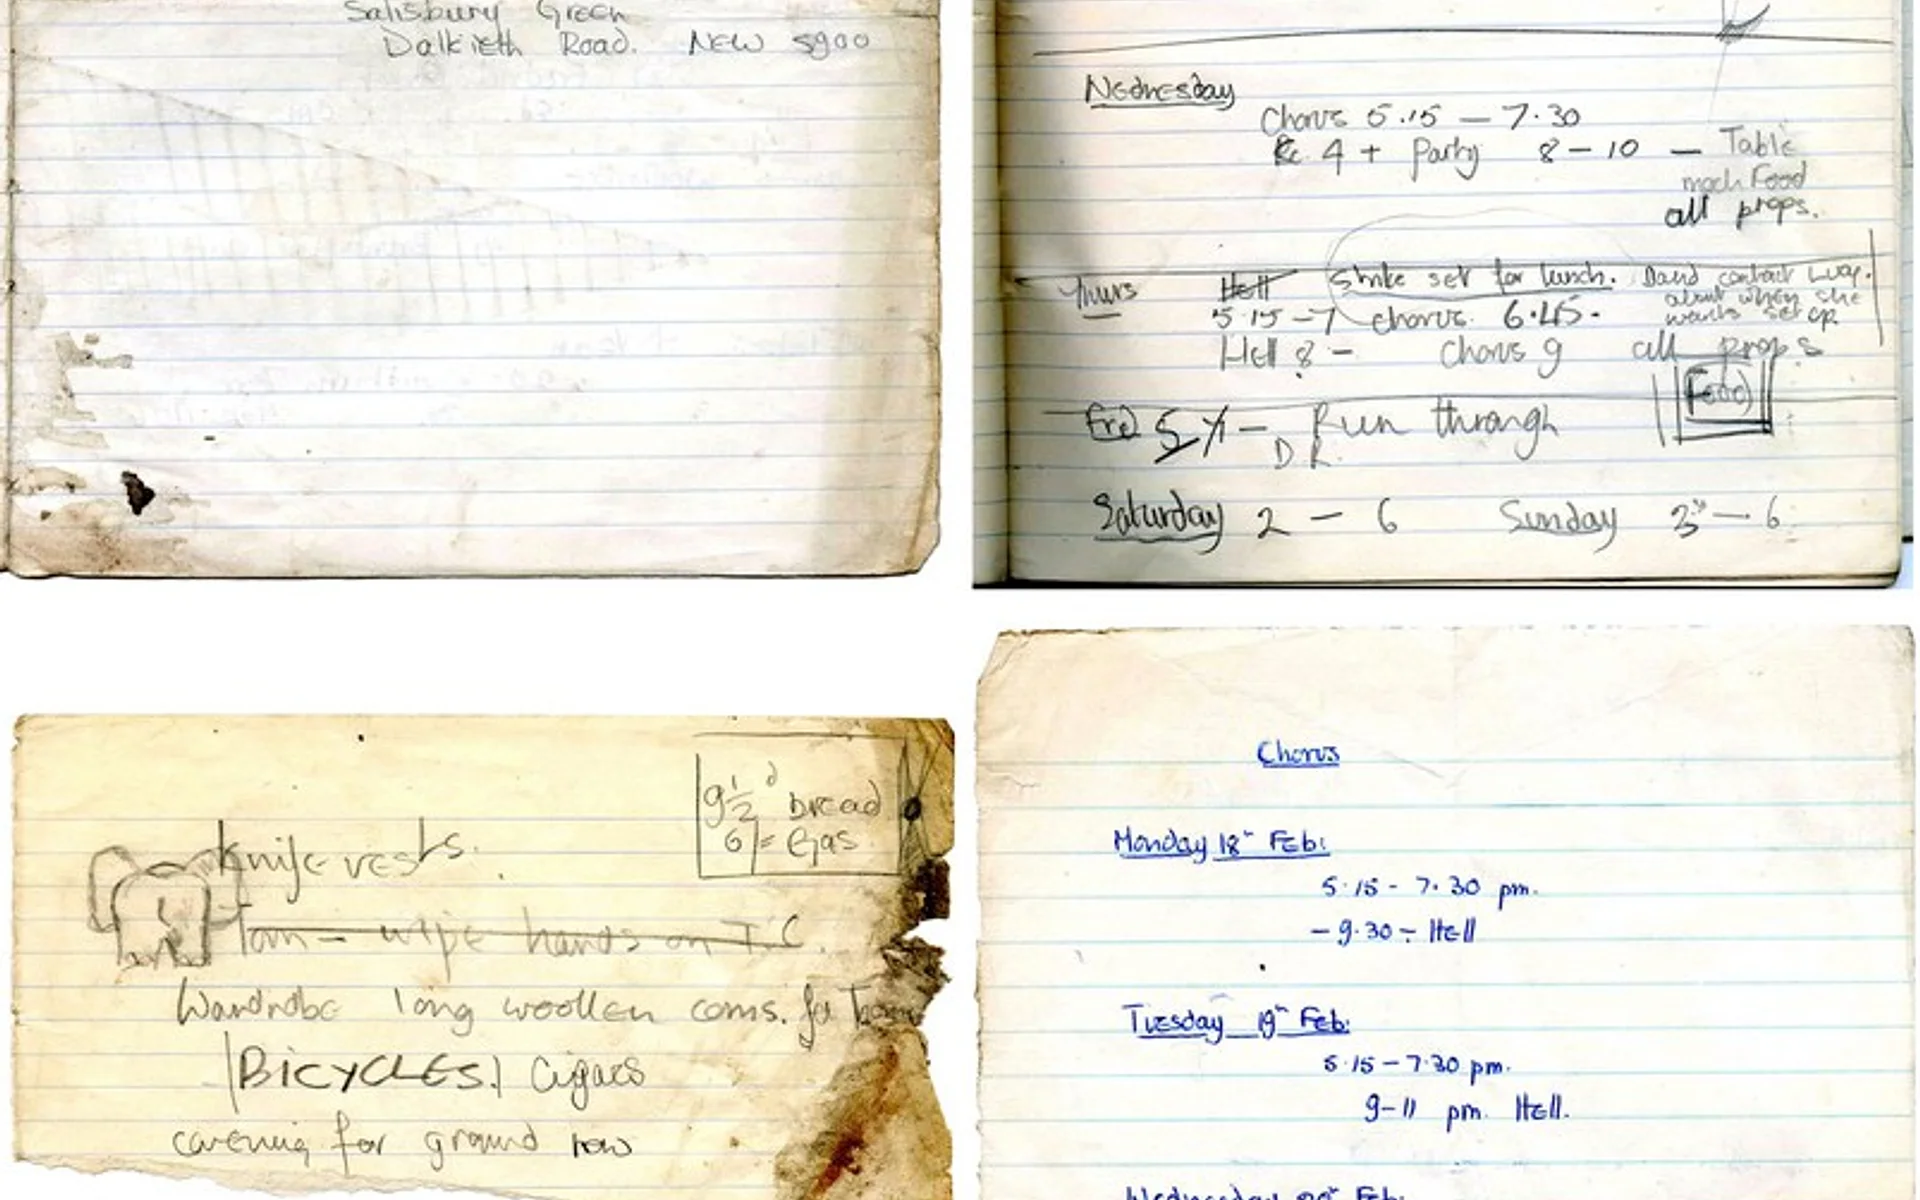 Salisbury Green
Dalkieth Road. NEW 5900
Wednesday
Chorus 5.15 — 7.30
Sc. 4 + Party 8 — 10 — Table
moch Food
all props.
Thurs Hell Strike set for lunch. David contact Lucy.
about when she
wants set up
5.15 — 7 chorus 6.45.
Hell 8 — Chorus 9 all props
Food
Fri 5 — Run through
D R.
Saturday 2 — 6 Sunday 3 — 6
9½d bread
6/= Gas
Knife rests.
Tom — wipe hands on T.C.
Wardrobe long woollen coms. for
BICYCLES. Cigars
covering for ground row
Chorus
Monday 18th Feb:
5.15 - 7.30 pm.
- 9.30 - Hell
Tuesday 19th Feb:
5.15 — 7.30 pm.
9-11 pm. Hell.
Wednesday 20th Feb: